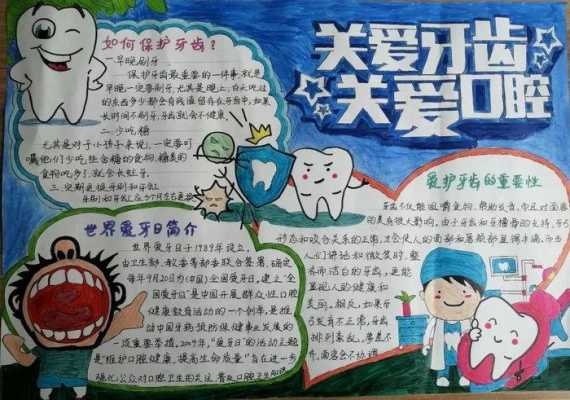 关爱牙齿
关爱口腔
如何保护牙齿?
一.早晚刷牙
保护牙齿最重要的一件事,就是
早晚一定要刷牙,尤其是晚上,白天吃过
的东西多少都会有残渣留存在牙齿中,如果
长时间不刷牙,牙齿就会不健康。
二.少吃糖
尤其是对于小孩子来说,一定要叮
嘱他们少吃些含糖的食物,糖类的
食物吃多了,就会长蛀牙。
三.定期更换牙刷和牙缸
世界爱牙日简介
世界爱牙日于1989年设立,
由卫生部、教委等部委联合签署,确定
每年9月20日为(中国)全国爱牙日,建立"全
国爱牙日"是中国开展群众性口腔
健康教育活动的一个创举,是推
动中国牙病预防保健事业发展的
一项重要举措,2019年,"爱牙日"的活动主题
是"维护口腔健康,提高生命质量"旨在进一步
强化公众对口腔卫生的关注
爱护牙齿的重要性
牙齿不仅能咀嚼食物、帮助发音,而且对面容
的美有很大影响。由于牙齿和牙槽骨的支持,牙弓
形态和咬合关系的正常,才会使人的面部和唇颊部显得丰满。而当
人们讲话和微笑时,整
齐而洁白的牙齿,更能
显现人的健康和
美丽。相反,如果牙
弓发育不正常,牙齿
排列紊乱,参差不
齐,面容会不协调